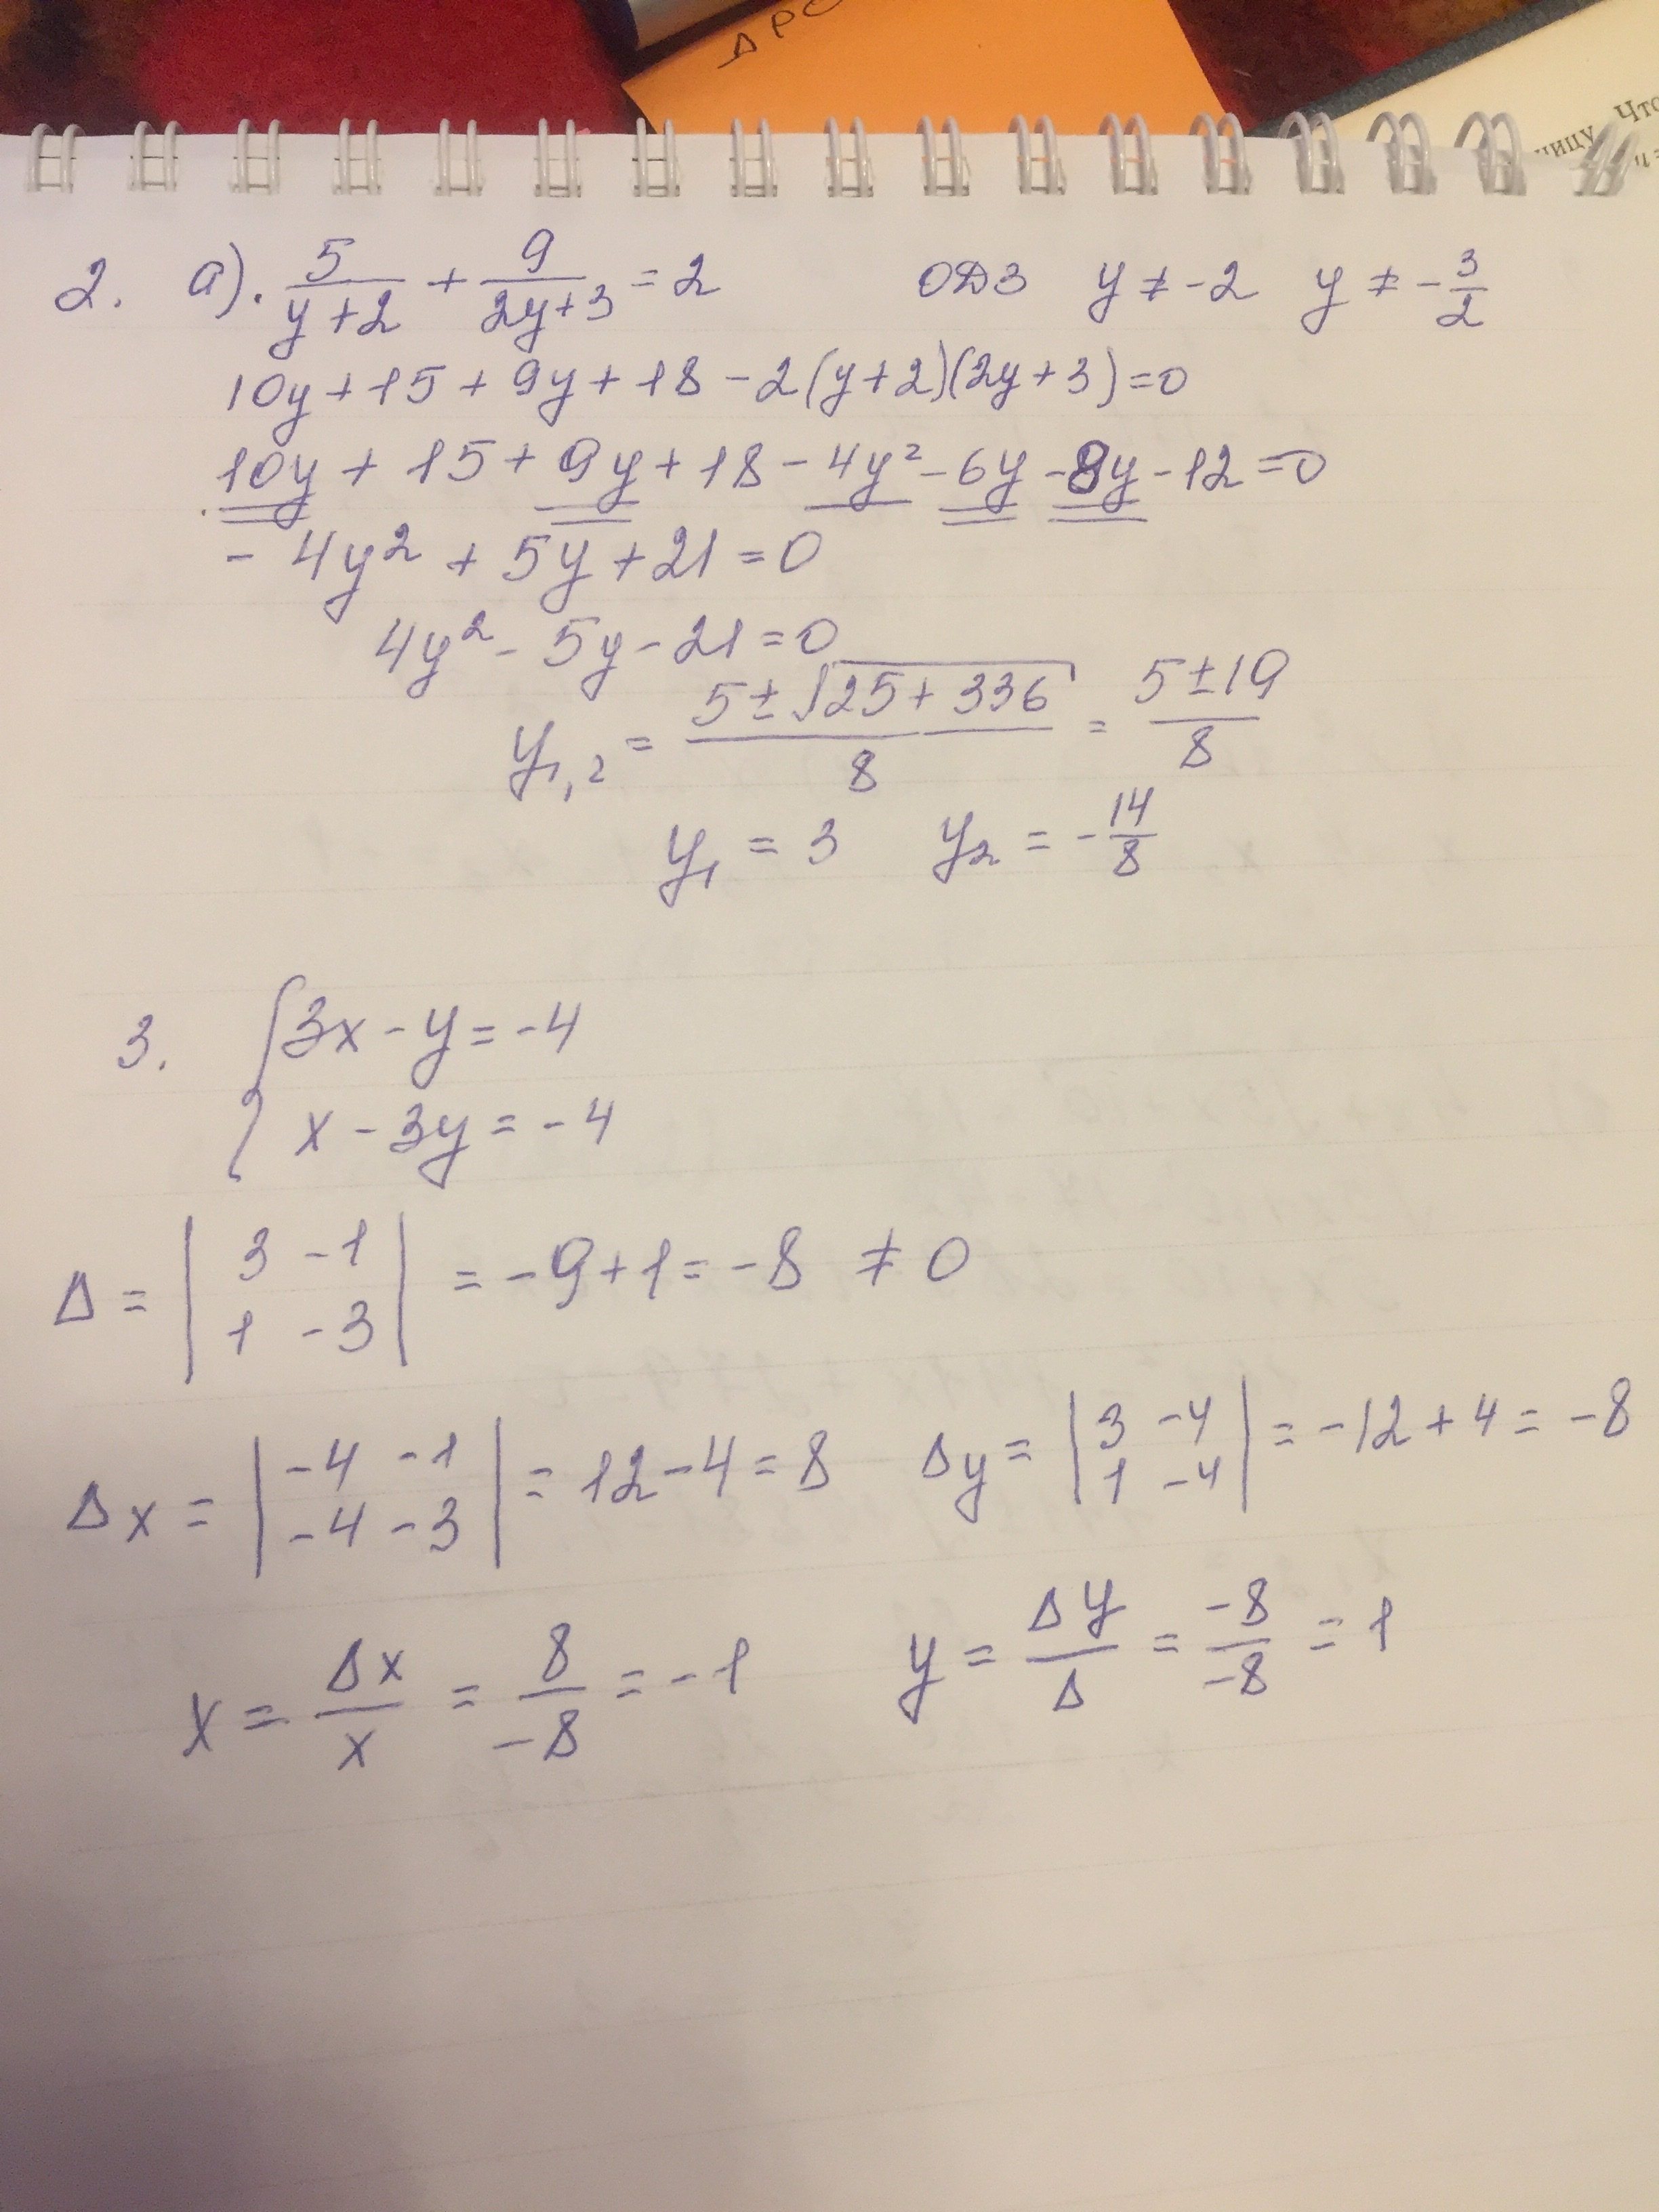 АРС
Что
ницу
2. а). 5/(y+2) + 9/(2y+3) = 2 ОДЗ y ≠ -2 y ≠ -3/2
10y + 15 + 9y + 18 - 2(y+2)(2y+3) = 0
10y + 15 + 9y + 18 - 4y² - 6y - 8y - 12 = 0
- 4y² + 5y + 21 = 0
4y² - 5y - 21 = 0
y₁,₂ = (5 ± √(25 + 336))/8 = (5 ± 19)/8
y₁ = 3 y₂ = -14/8
3. { 3x - y = -4
x - 3y = -4
Δ = | 3 -1 ; 1 -3 | = -9 + 1 = -8 ≠ 0
Δx = | -4 -1 ; -4 -3 | = 12 - 4 = 8 Δy = | 3 -4 ; 1 -4 | = -12 + 4 = -8
x = Δx/x = 8/-8 = -1 y = Δy/Δ = -8/-8 = 1